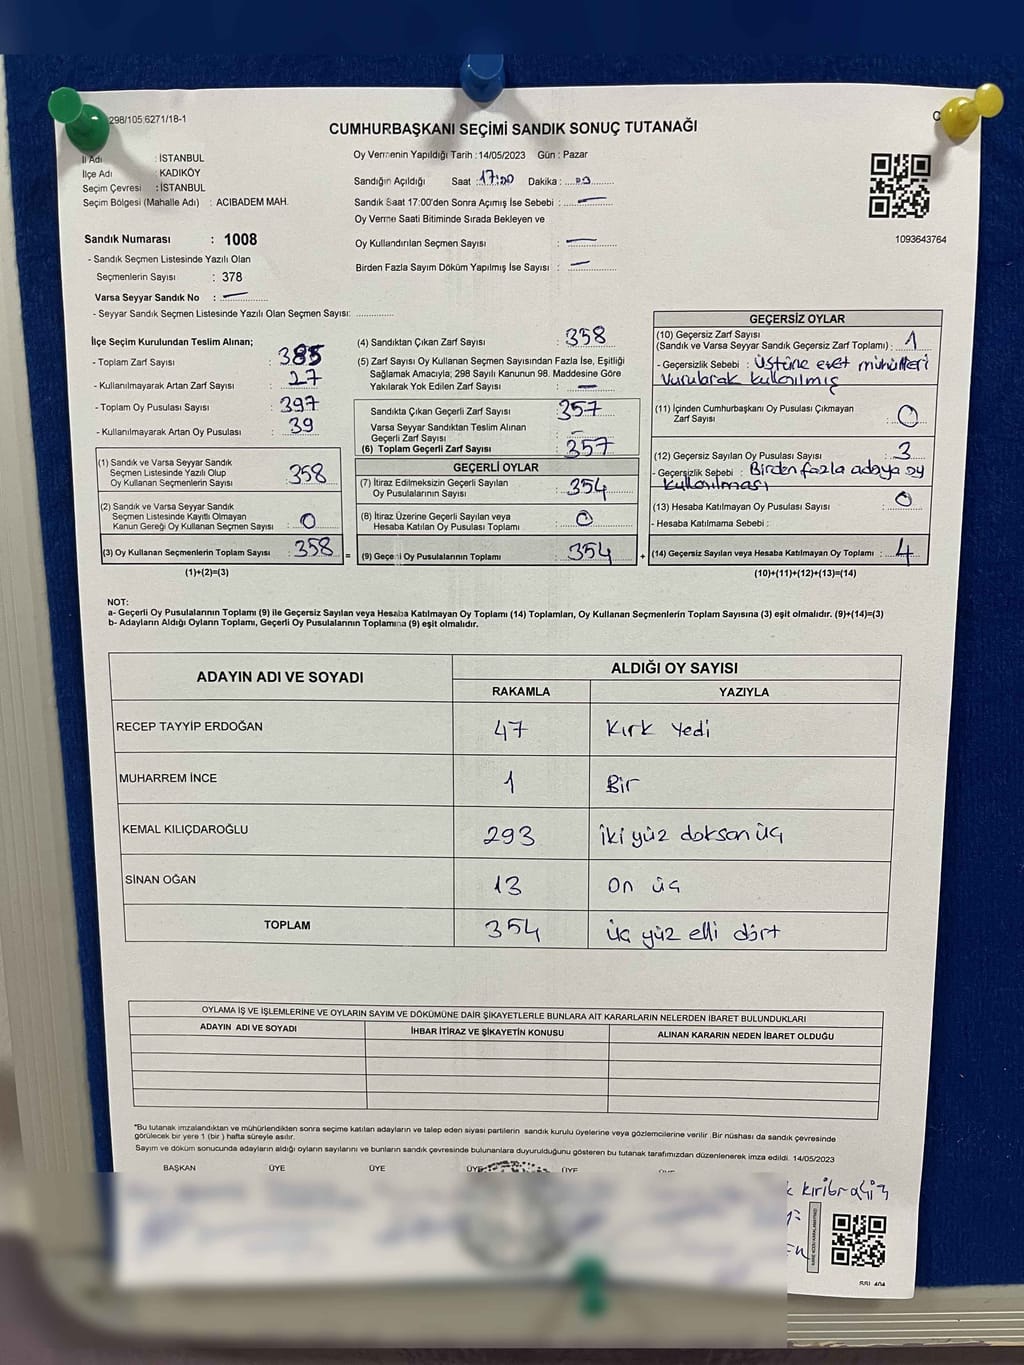 298/105.6271/18-1
CUMHURBAŞKANI SEÇİMİ SANDIK SONUÇ TUTANAĞI
İl Adı : İSTANBUL
İlçe Adı : KADIKÖY
Seçim Çevresi : İSTANBUL
Seçim Bölgesi (Mahalle Adı) : ACIBADEM MAH.
Sandık Numarası : 1008
- Sandık Seçmen Listesinde Yazılı Olan
Seçmenlerin Sayısı : 378
Varsa Seyyar Sandık No : —
- Seyyar Sandık Seçmen Listesinde Yazılı Olan Seçmen Sayısı: ..............
Oy Vermenin Yapıldığı Tarih : 14/05/2023 Gün : Pazar
Sandığın Açıldığı Saat : 17:00 Dakika :
Sandık Saat 17:00'den Sonra Açımış İse Sebebi : —
Oy Verme Saati Bitiminde Sırada Bekleyen ve
Oy Kullandırılan Seçmen Sayısı : —
Birden Fazla Sayım Döküm Yapılmış İse Sayısı : —
1093643764
İlçe Seçim Kurulundan Teslim Alınan;
- Toplam Zarf Sayısı : 385
- Kullanılmayarak Artan Zarf Sayısı : 27
- Toplam Oy Pusulası Sayısı : 397
- Kullanılmayarak Artan Oy Pusulası : 39
(1) Sandık ve Varsa Seyyar Sandık
Seçmen Listesinde Yazılı Olup
Oy Kullanan Seçmenlerin Sayısı : 358
(2) Sandık ve Varsa Seyyar Sandık
Seçmen Listesinde Kayıtlı Olmayan
Kanun Gereği Oy Kullanan Seçmen Sayısı : 0
(3) Oy Kullanan Seçmenlerin Toplam Sayısı : 358 =
(1)+(2)=(3)
(4) Sandıktan Çıkan Zarf Sayısı : 358
(5) Zarf Sayısı Oy Kullanan Seçmen Sayısından Fazla İse, Eşitliği
Sağlamak Amacıyla; 298 Sayılı Kanunun 98. Maddesine Göre
Yakılarak Yok Edilen Zarf Sayısı : —
Sandıkta Çıkan Geçerli Zarf Sayısı : 357
Varsa Seyyar Sandıktan Teslim Alınan
Geçerli Zarf Sayısı : —
(6) Toplam Geçerli Zarf Sayısı : 357
GEÇERLİ OYLAR
(7) İtiraz Edilmeksizin Geçerli Sayılan
Oy Pusulalarının Sayısı : 354
(8) İtiraz Üzerine Geçerli Sayılan veya
Hesaba Katılan Oy Pusulası Toplamı : 0
(9) Geçerli Oy Pusulalarının Toplamı : 354 +
GEÇERSİZ OYLAR
(10) Geçersiz Zarf Sayısı
(Sandık ve Varsa Seyyar Sandık Geçersiz Zarf Toplamı) : 1
- Geçersizlik Sebebi : Üstüne evet mühürleri
vurularak kullanılmış
(11) İçinden Cumhurbaşkanı Oy Pusulası Çıkmayan
Zarf Sayısı : 0
(12) Geçersiz Sayılan Oy Pusulası Sayısı : 3
- Geçersizlik Sebebi : Birden fazla adaya oy
kullanılması
(13) Hesaba Katılmayan Oy Pusulası Sayısı : 0
- Hesaba Katılmama Sebebi :
(14) Geçersiz Sayılan veya Hesaba Katılmayan Oy Toplamı : 4
(10)+(11)+(12)+(13)=(14)
NOT:
a- Geçerli Oy Pusulalarının Toplamı (9) ile Geçersiz Sayılan veya Hesaba Katılmayan Oy Toplamı (14) Toplamları, Oy Kullanan Seçmenlerin Toplam Sayısına (3) eşit olmalıdır. (9)+(14)=(3)
b- Adayların Aldığı Oyların Toplamı, Geçerli Oy Pusulalarının Toplamına (9) eşit olmalıdır.
ADAYIN ADI VE SOYADI ALDIĞI OY SAYISI
RAKAMLA YAZIYLA
RECEP TAYYİP ERDOĞAN 47 Kırk Yedi
MUHARREM İNCE 1 Bir
KEMAL KILIÇDAROĞLU 293 İki yüz doksan üç
SİNAN OĞAN 13 On üç
TOPLAM 354 üç yüz elli dört
OYLAMA İŞ VE İŞLEMLERİNE VE OYLARIN SAYIM VE DÖKÜMÜNE DAİR ŞİKAYETLERLE BUNLARA AİT KARARLARIN NELERDEN İBARET BULUNDUKLARI
ADAYIN ADI VE SOYADI İHBAR İTİRAZ VE ŞİKAYETİN KONUSU ALINAN KARARIN NEDEN İBARET OLDUĞU
*Bu tutanak imzalandıktan ve mühürlendikten sonra seçime katılan adayların ve talep eden siyasi partilerin sandık kurulu üyelerine veya gözlemcilerine verilir .Bir nüshası da sandık çevresinde
görülecek bir yere 1 (bir ) hafta süreyle asılır.
Sayım ve döküm sonucunda adayların aldığı oyların sayılarını ve bunların sandık çevresinde bulunanlara duyurulduğunu gösteren bu tutanak tarafımızdan düzenlenerek imza edildi. 14/05/2023
BAŞKAN ÜYE ÜYE ÜYE ÜYE